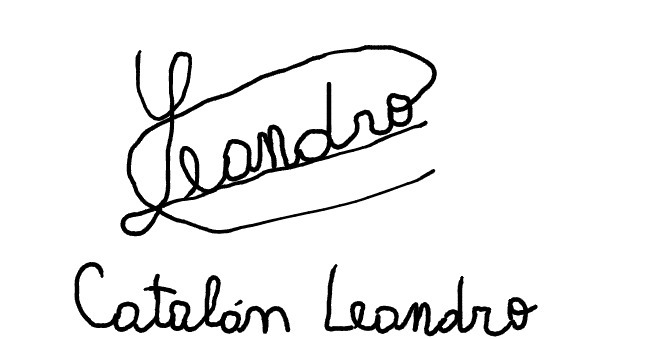 Leandro
Catalán Leandro